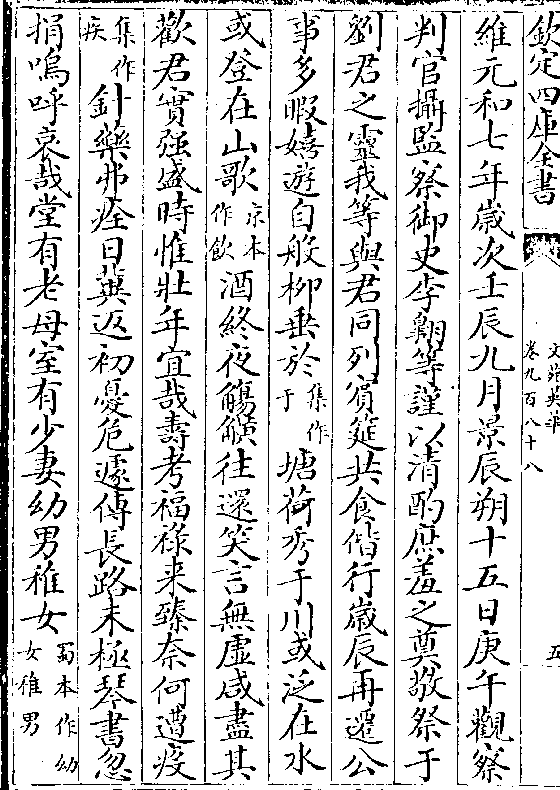 欽定四庫全書
文苑英華
卷九百八十八
五
維元和七年歲次壬辰九月景辰朔十五日庚午觀察
判官攝監察御史李翺等謹以清酌庶羞之奠敬祭于
劉君之靈我等與君同列賓筵共食偕行歲辰再還公
事多暇嬉遊自般柳垂於集作于塘荷秀于川或泛在水
或登在山歌京本作飲酒終夜觴觥往還笑言無虛咸盡其
歡君實强盛時惟壯年宜哉壽考福祿来臻奈何遭疫
集作疾針藥弗痊日冀返初憂危遽傳長路未極琴書忽
捐嗚呼哀哉堂有老母室有少妻幼男稚女蜀本作幼女稚男